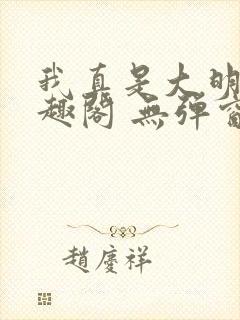 我真是大明
趣閣 無彈窗
趙慶祥